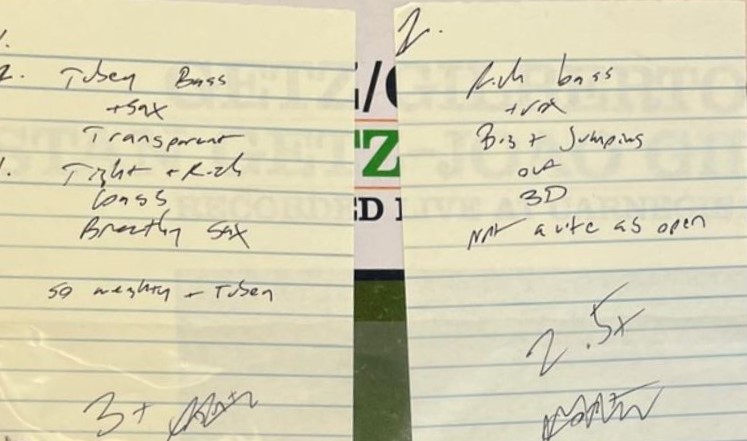 1.
2. Tubey Bass
+ Sax
Transparent
1. Tight + Rich
bass
Breathy Sax
so weighty + Tubey
3+
TZ
2.
Rich bass
+ vox
Big + Jumping
out
3D
Not quite as open
2.5+